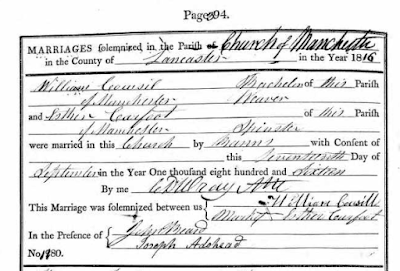 Page 394.
MARRIAGES solemnized in the Parish of Church of Manchester
in the County of Lancaster in the Year 1816
William Counsil Bachelor of this Parish
of Manchester Weaver
and Esther Caufoot of this Parish
of Manchester Spinster
were married in this Church by Banns with Consent of
this Seventeenth Day of
September in the Year One thousand eight hundred and Sixteen
By me C D Wray
This Marriage was solemnized between us William
Marks Esther
In the Presence of John Beard
Joseph Adshead
No. 1180.